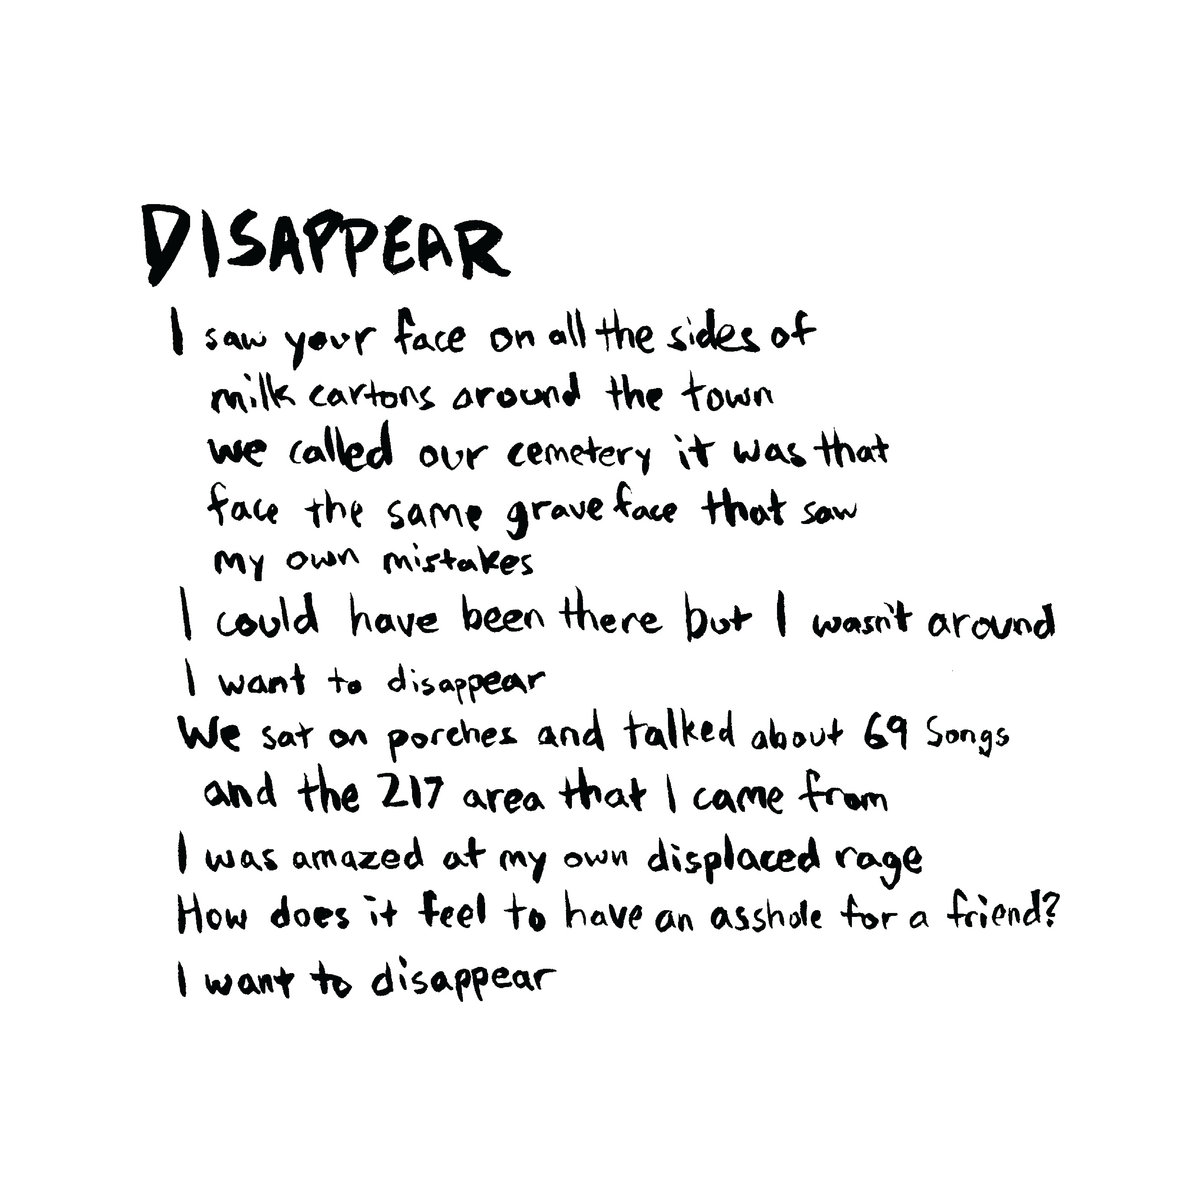 DISAPPEAR
I saw your face on all the sides of
milk cartons around the town
we called our cemetery it was that
face the same grave face that saw
my own mistakes
I could have been there but I wasn't around
I want to disappear
We sat on porches and talked about 69 Songs
and the 217 area that I came from
I was amazed at my own displaced rage
How does it feel to have an asshole for a friend?
I want to disappear